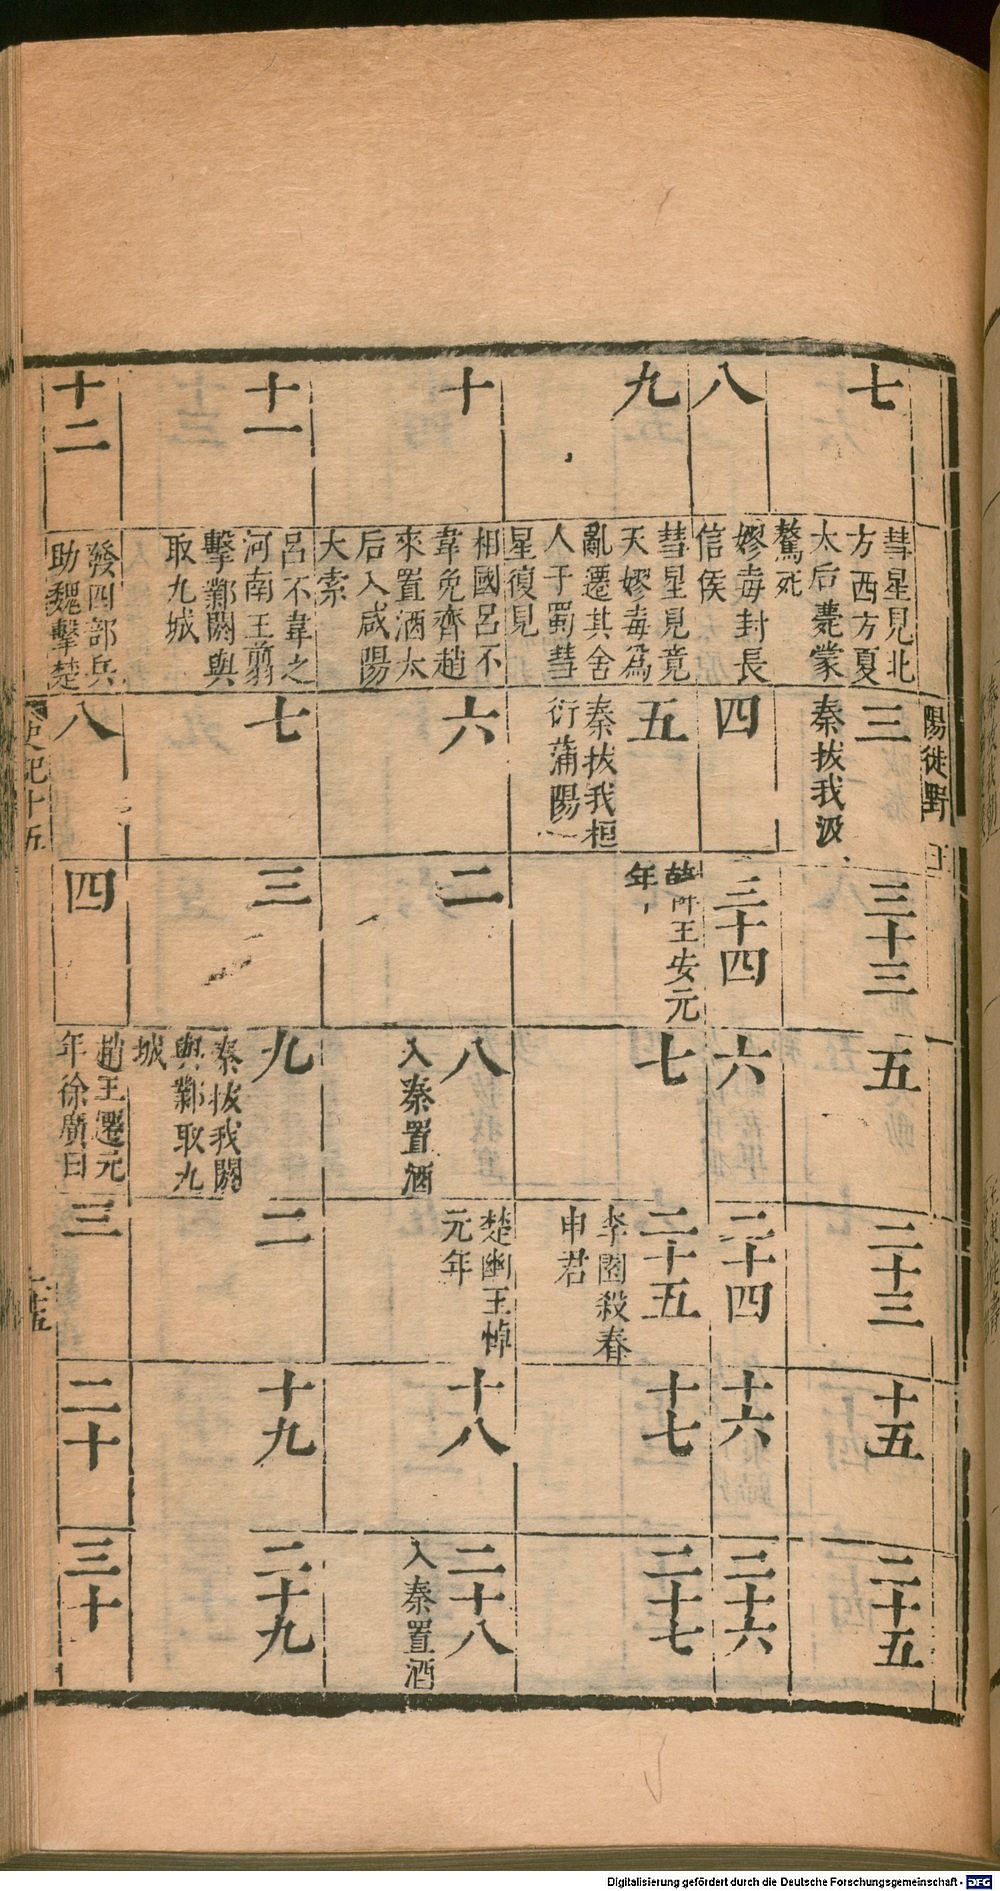 陽徙野
七
彗星見北
方西方夏
太后薨蒙
驁死
三
秦拔我汲
三十三
五
二十三
十五
二十五
八
嫪毐封長
信侯
四
三十四
六
二十四
十六
二十六
九
彗星見竟
天嫪毐爲
亂遷其舍
人于蜀彗
星復見
五
秦拔我桓
衍蒲陽
王安元
年
七
二十五
李園殺春
申君
十七
二十七
十
相國呂不
韋免齊趙
來置酒太
后入咸陽
大索
六
二
八
入秦置酒
楚幽王悼
元年
十八
二十八
入秦置酒
十一
呂不韋之
河南王翦
擊鄴閼與
取九城
七
三
九
秦拔我閼
與鄴取九
城
二
十九
二十九
十二
發四部兵
助魏擊楚
八
四
趙王遷元
年徐廣曰
三
二十
三十
史記十五
Digitalisierung gefördert durch die Deutsche Forschungsgemeinschaft - DFG